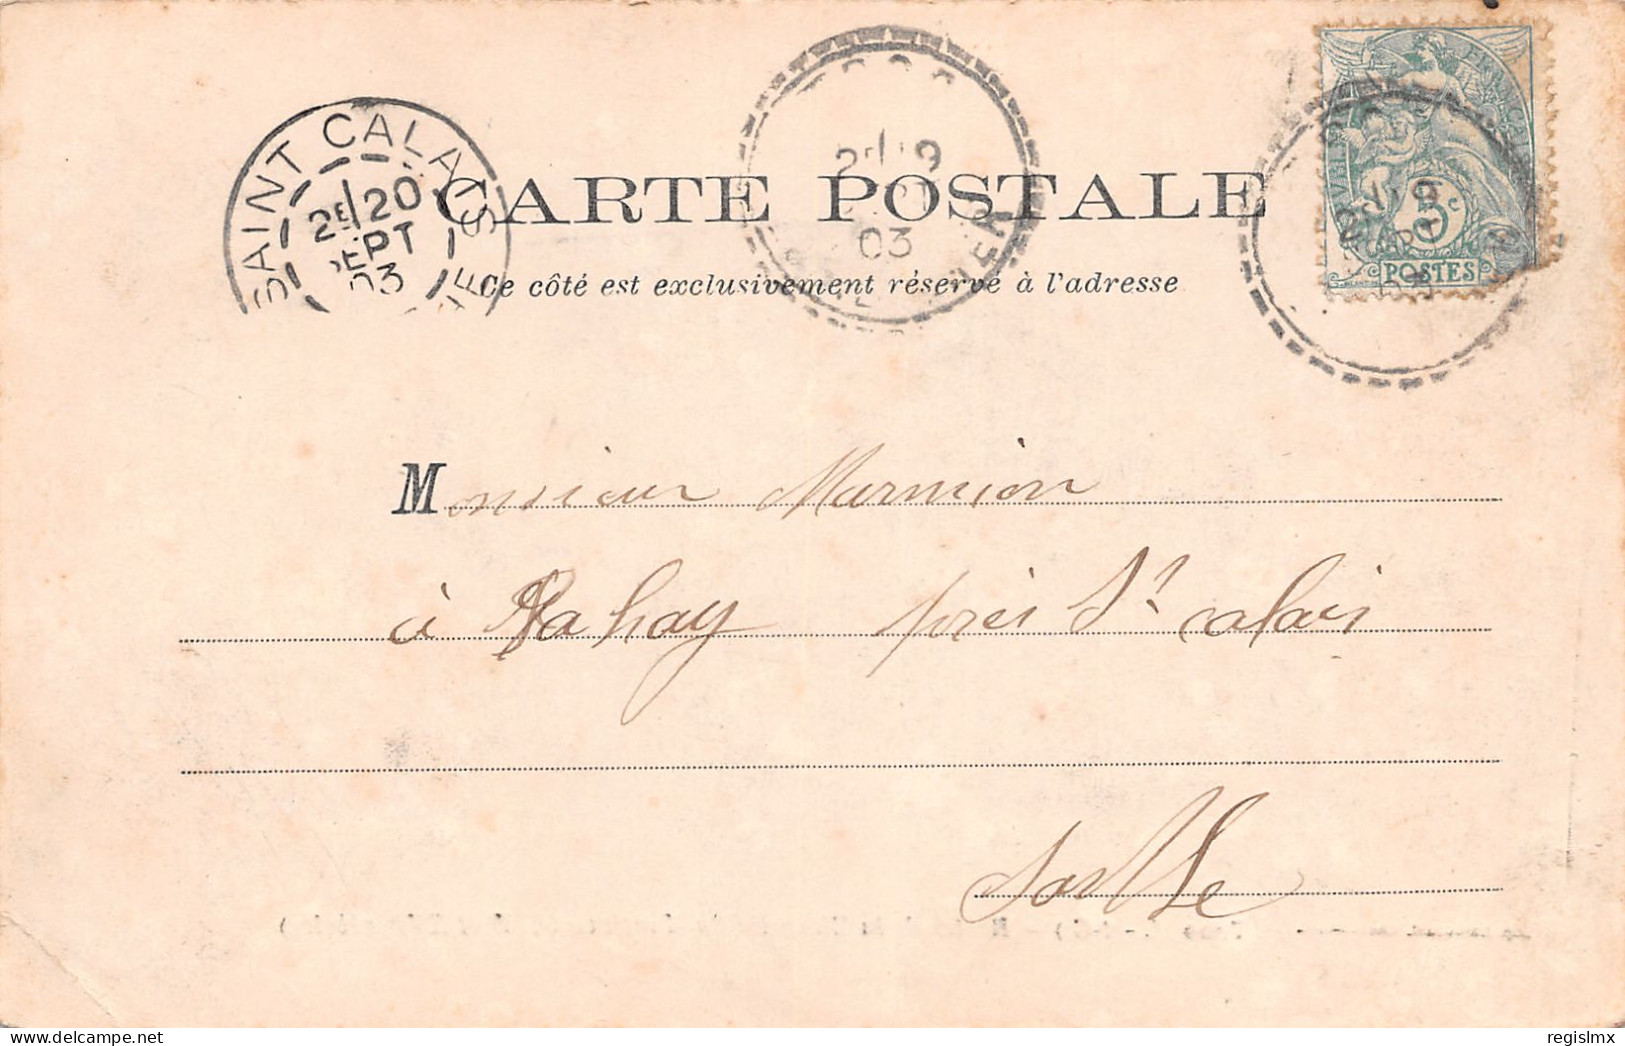 SAINT CALAIS
2E 20
SEPT
03
2E 19
03
FRANÇAISE
5c
POSTES
CARTE POSTALE
Ce côté est exclusivement réservé à l'adresse
Monsieur Marmion
à Rahay près St Calais
Sarthe
regislmx
delcampe.net